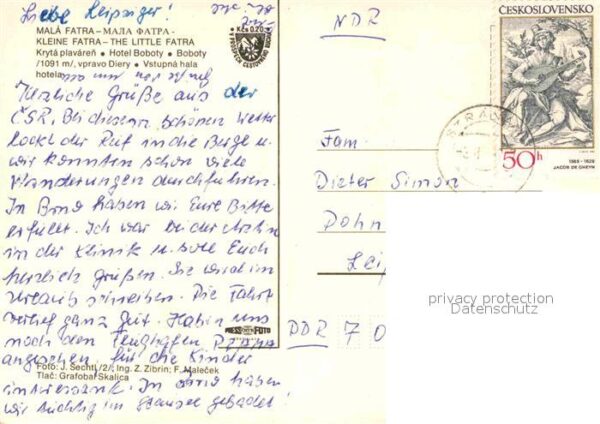 Liebe Leipziger!
MALÁ FATRA – МАЛА ФАТРА -
KLEINE FATRA – THE LITTLE FATRA
Krytá plaváreň • Hotel Boboty • Boboty
/1091 m/, vpravo Diery • Vstupná hala
hotela
Kčs 0,20
Herzliche Grüße aus der
ČSR. Bei diesem schönen Wetter
lockt der Ruf in die Berge u.
wir konnten schon viele
Wanderungen durchführen.
In Brno haben wir Eure Bitte
erfüllt. Ich war bei der Ärztin
in der Klinik u. soll Euch
herzlich grüßen. Sie wird im
Urlaub schreiben. Die Fahrt
verlief ganz gut. Haben uns
noch den Flughafen
angesehen, für die Kinder
interessant. In Brno haben
wir tüchtig im Stausee gebadet!
Foto: J. Sechtl /2/; Ing. Z. Zibrín; F. Maleček
Tlač: Grafobal Skalica
PRESSFOTO
NDR
ČESKOSLOVENSKO
50h
1565-1629
JACOB DE GHEYN
Fam.
Dieter Simon
DDR 70
privacy protection
Datenschutz